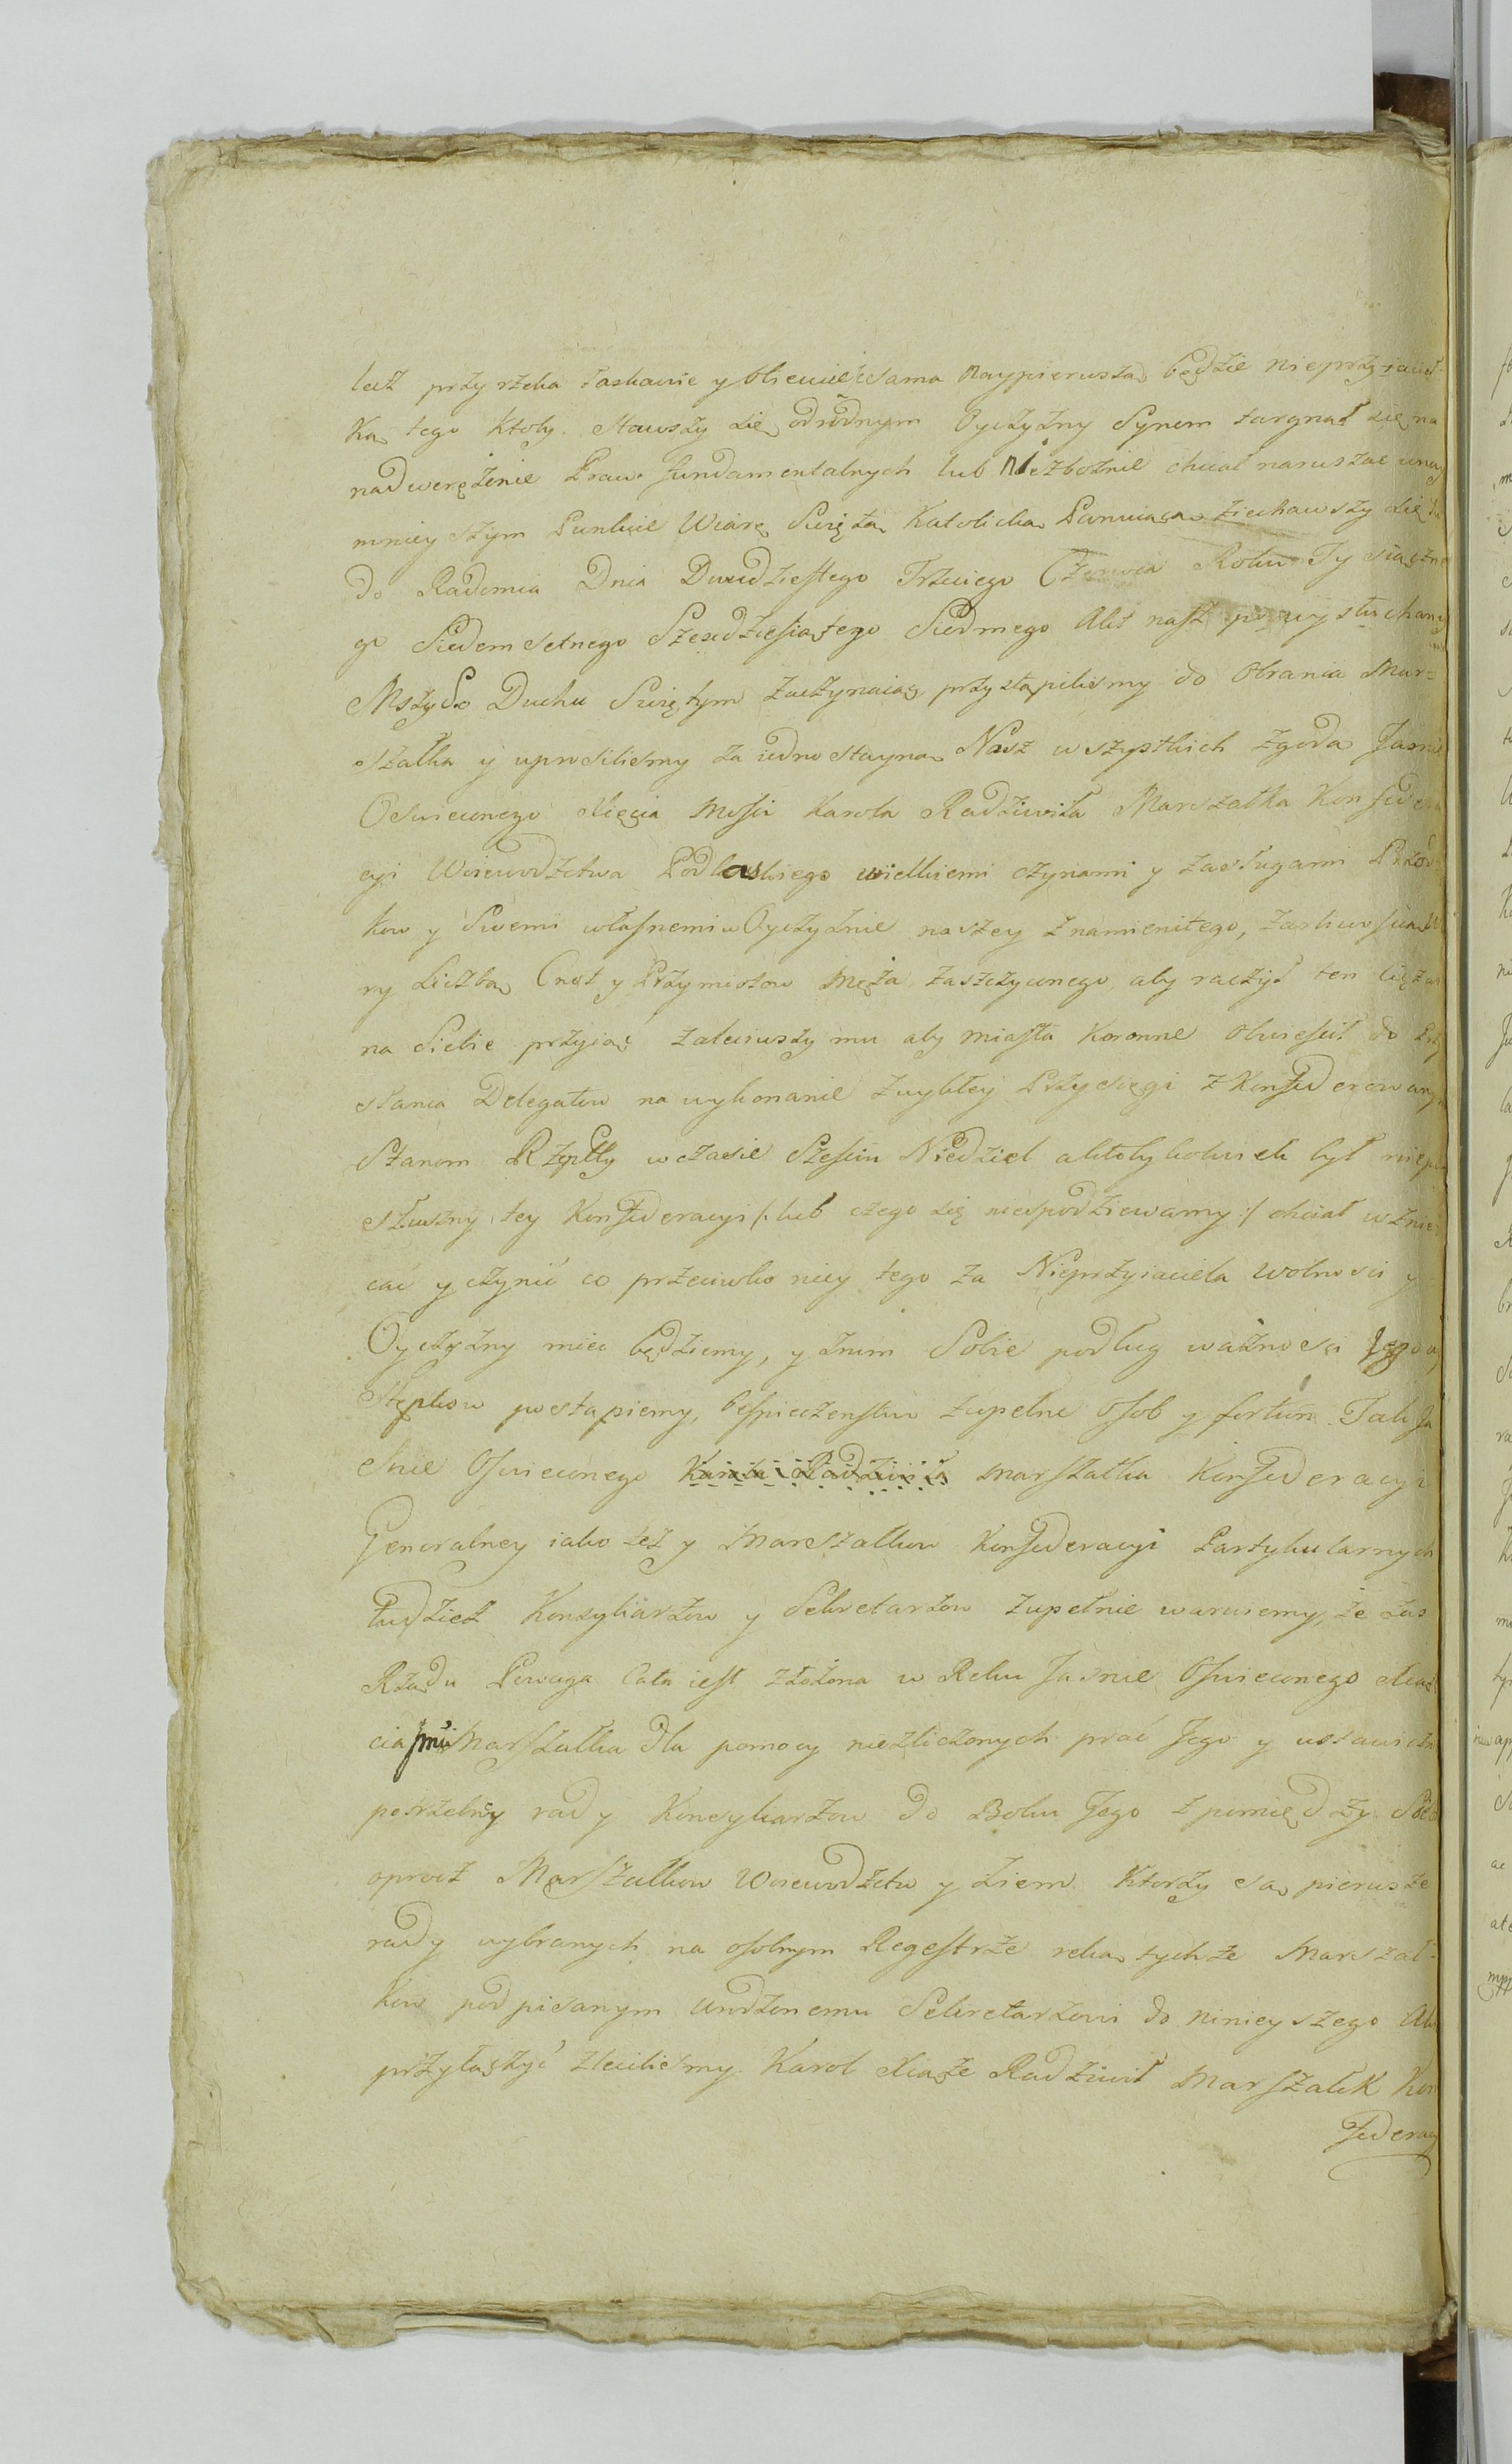 lecz przyrzeka łaskawie y obiecuie sama naypierwszą będzie nieprzyiaciół-
ką tego ktoby stawszy się odrodnym Oyczyzny Synem targnął się na
nadwerężenie Praw fundamentalnych lub niezbożnie chciał naruszać w nay
mnieyszym Punkcie Wiarę Swiętą Katolicką Panuiącą ziechawszy się
do Radomia Dnia Dwudziestego Trzeciego Czerwca Roku Tysiączne
go Siedemsetnego Szescdziesiątego Siedmego Akt nasz po wysłuchaney
Mszy do Ducha Swiętym zaczynaiąc przystąpilismy do Obrania Mar=
szałka y uprosilismy za iednostayną Nasz wszystkich zgodą Jasnie
Oswieconego Xięcia Mosci Karola Radziwiła Marszałka Konfedera
cyi Woiewodztwa Podlaskiego wielkiemi czynami y zasługami Przod
kow y Swemi własnemi w Oyczyznie naszey znamienitego,
ry Liczbą Cnot y Przymiotow Męża zaszczyconego aby raczył ten ciężar
na Siebie przyiąć zaleciwszy mu aby miasta Koronne obwiescił do Przy
słania Delegatow na wykonanie zwykłey Przysięgi z Konfederowanym
Stanom Rzeptty w czasie Szesciu Niedziel a ktobykolwiek był niepo
słuszny tey Konfederacyi /: lub czego się niespodziewamy :/ chciał wznie
cać y czynić co przeciwko niey tego za Nieprzyiaciela wolnosci y
Oyczyzny miec będziemy, y znim Sobie podług ważnosci
Stępkow postąpiemy, bespieczenstwo zupełne Osob y fortun Tak Ja
snie Oswieconego Karola Radziwiła Marszałka Konfederacyi
Generalney iako też y Marszałkow Konfederacyi Partykularnych
tudzież Konsyliarzow y Sekretarzow zupełnie waruiemy, że zas
Rządu Powaga cała iest złożona w Ręku Jasnie Oswieconego Xiąż
cia Jmci Marszałka dla pomocy niezliczonych prac Jego y ustawiczn
potrzebney rady Konsyliarzow do Boku Jego z pomiędzy Sieb
oprocz Marszałkow Woiewodztw y Ziem ktorzy są pierwsze
rady wybranych na osobnym Regestrze ręką tychże Marszał-
kow podpisanym urodzonemu Sekretarzowi do ninieyszego Ak
przyłączyć zlecilismy. Karol Xiąże Radziwił Marszałek Kon
federacy